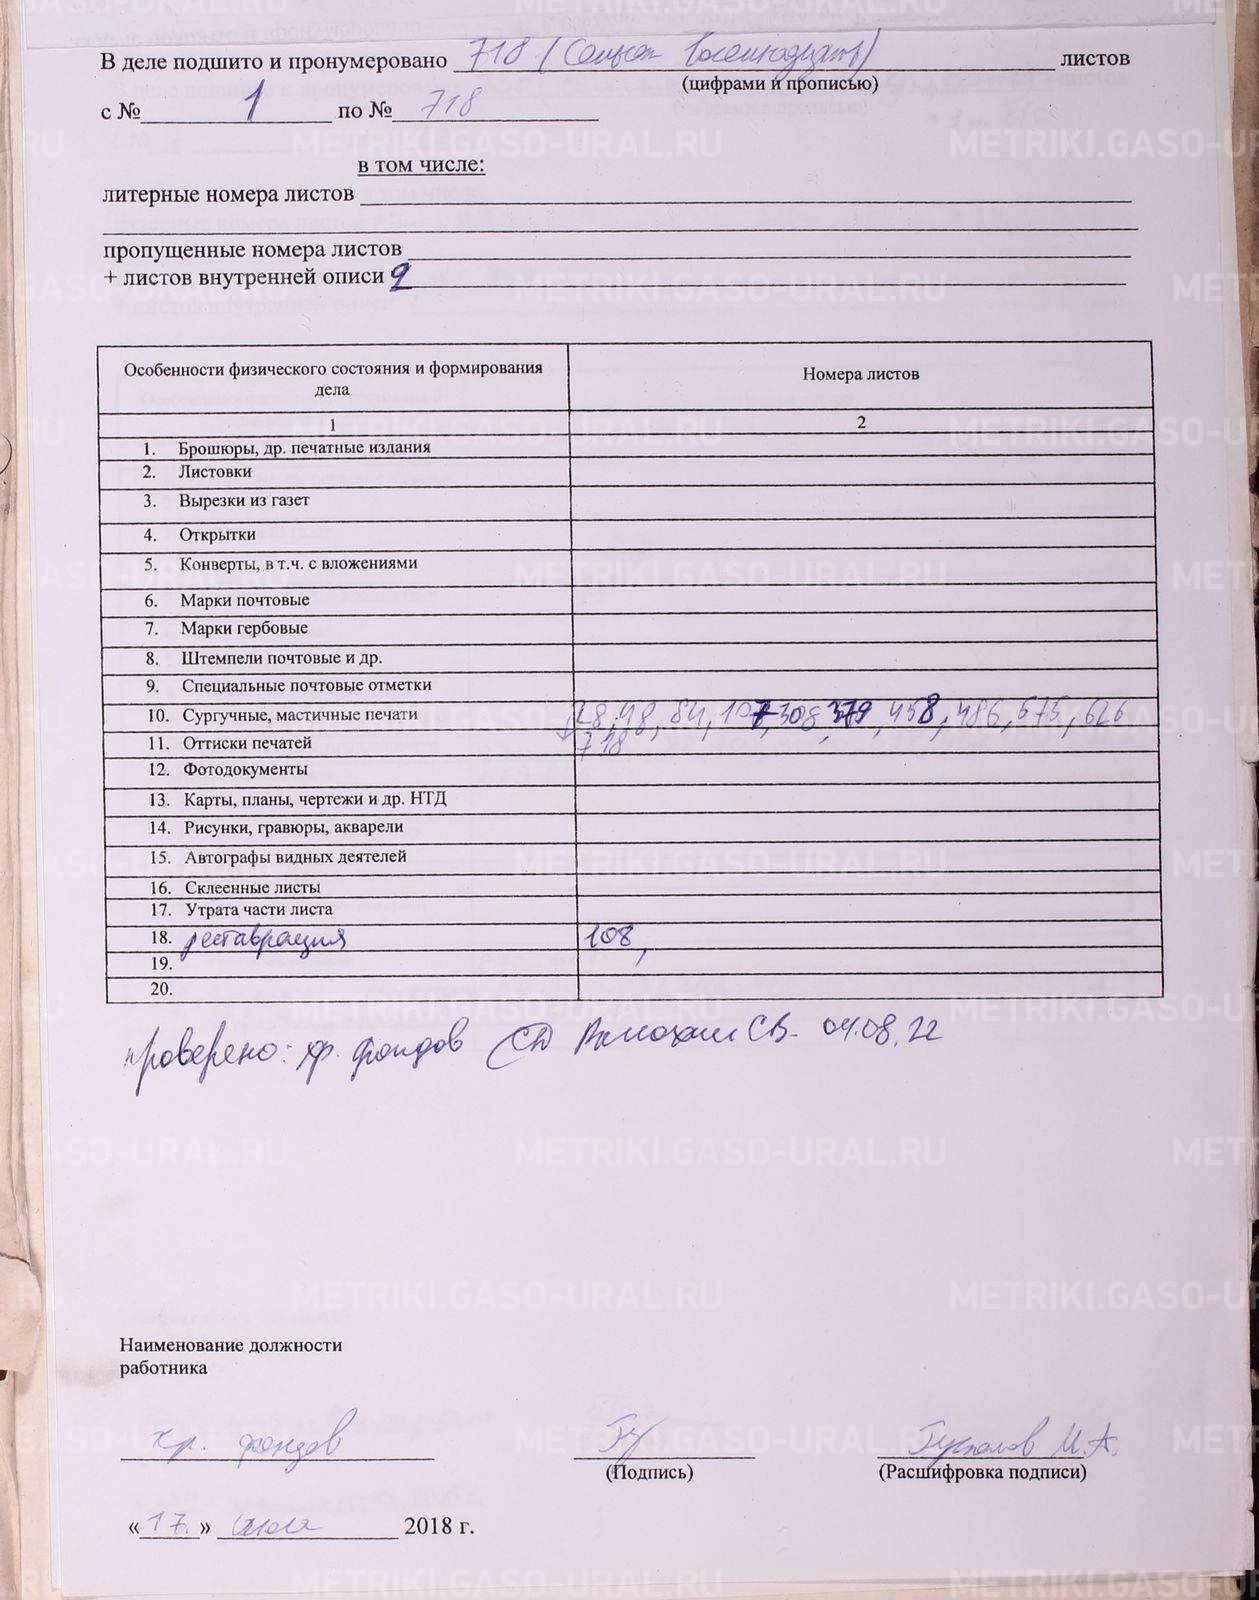 В деле подшито и пронумеровано 718 (Семьсот восемнадцать) листов
(цифрами и прописью)
с № 1 по № 718
в том числе:
литерные номера листов
пропущенные номера листов
+ листов внутренней описи 9
Особенности физического состояния и формирования дела Номера листов
1 2
1. Брошюры, др. печатные издания
2. Листовки
3. Вырезки из газет
4. Открытки
5. Конверты, в т.ч. с вложениями
6. Марки почтовые
7. Марки гербовые
8. Штемпели почтовые и др.
9. Специальные почтовые отметки
10. Сургучные, мастичные печати 28, 48, 84, 107, 308, 379, 458, 486, 575, 626
11. Оттиски печатей 718
12. Фотодокументы
13. Карты, планы, чертежи и др. НТД
14. Рисунки, гравюры, акварели
15. Автографы видных деятелей
16. Склеенные листы
17. Утрата части листа
18. реставрация 108,
19.
20.
проверено: хр. фондов С.В. 04.08.22
Наименование должности
работника
хр. фондов
(Подпись) (Расшифровка подписи)
И.А.
«17.» июля 2018 г.
METRIKI.GASO-URAL.RU